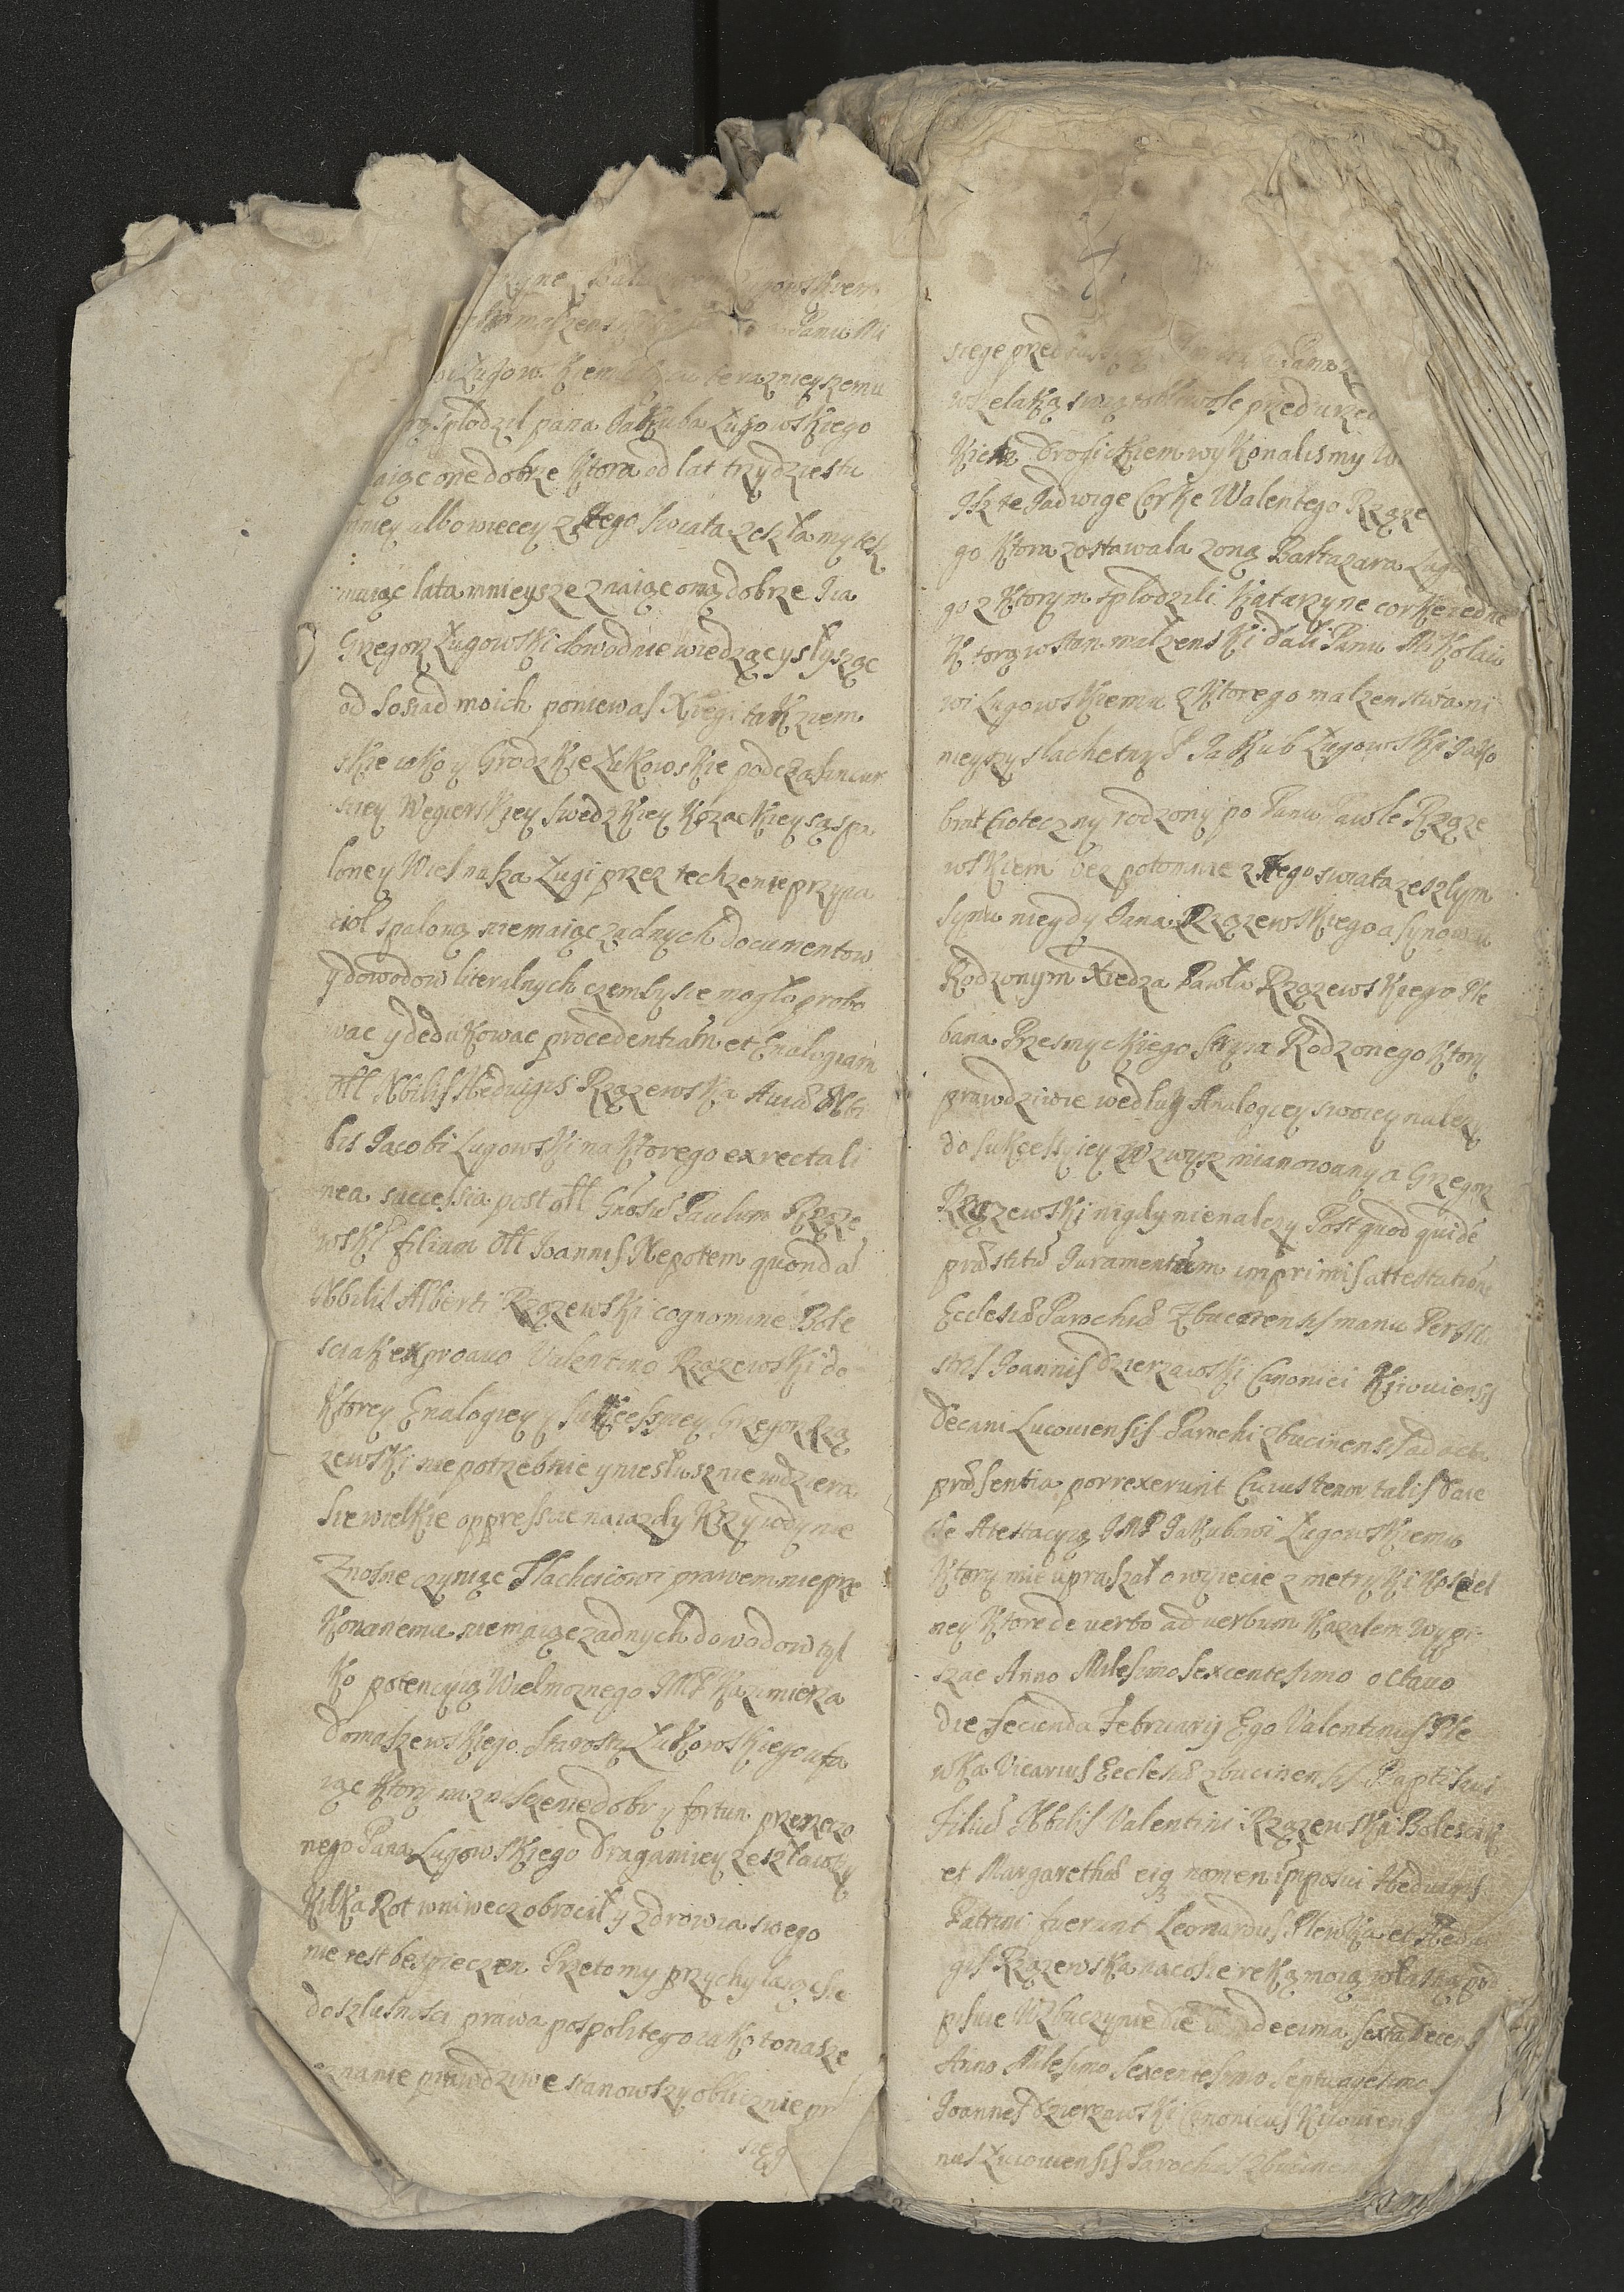 Panu Mi
Zugow Kiemu teraznieyszemu
splodził pana Jakuba Zugowskiego
aiąc one dobrze Ktora od lat trzydziestu
mniey albo wiecey z tego swiata zeszła my tesz
maiąc lata mnieysze znaiąc oną dobrze Jia
Grzegorz Zugowski dowodnie wiedzący słysząc
od Sosiad moich poniewas Xiegi tak ziem
skie iako y Grodzkie Zukowskie podczas incur
siey Wegierskiey Swedzkiey Kozackiey są spa
lone y Wies nasza Zugi przez techze nieprzyia
ciol spaloną niemaiąc zadnych documentow
y dowodow literalnych czemby sie mogło probo
wac y dedukowac procedentiam et Enalogiam
Oll Nbilis Hedvigis Rzązewska Avia Nbi
lis Jacobi Lugowski na Ktorego ex recta li
nea successia post oll Gnosu Paulum Rząze
wski filium oll Joannis Nepotem quonda
Nbilis Alberti Rzązewski cognomine Bole
sciak ex proavo Valentino Rzązewski do
Ktorey Enalogiey y Sukcessyiey Grzegorz Rzą
zewski nie potrzebnie y niesłusznie wdziera
sie wielkie oppressie naiazdy Krzywdy nie
Znosne czyniąc Slachcicowi prawem nieprze
Konanemu niemaiąc zadnych dowodow tyl
ko potencyią Wielmoznego JMP Kazimierza
Domaszewskiego Starosty Zukowskiego ufa
iąc Ktory na zniszczenie dobr y fortun przerzeczo
nego Pana Lugowskiego Draganiey zesławszy
Kilka Rot wniwecz obrocił y zdrowia swego
nie iest bespieczen Przeto my przychylaiąc sie
do szlusnosci prawa pospolitego iako to nasze
znanie prawdziwe stanowszy oblicznie pr
sieg
siege przed
wszelaką swiątobliwosc przed urzęd
Kiem Drohickiem wykonalismy
Jsz te Jadwige Corke Walentego Rząze
go Ktora zostawala zoną Baltazara Lugo
go z Ktorym splodzili Katarzyne corke iedne
Ktorą w stan malzenski dali Panu Mikolaio
wi Lugowskiemu z Ktorego malzenstwa ni
nieyszy slachetny P Jakub Zugowski Jako
brat Cioteczny rodzony po Panu Pawle Rząze
wskiem bez potomnie z tego swiata zeszlym
Synu niegdy Jana Rzązewskiego a synowcu
Rodzonym Xiedza Pawła Rzązewskiego Ple
bana Przesmyckiego Stryia Rodzonego Ktory
prawdziwie według Analogiey swoiey nalezy
do sukcessyiey zwysz mianowany a Grzegorz
Rzązewski nigdy nienalezy Post quod quide
prstitu Juramentum imprimis attestatione
Ecclesia Parochia Zbuczynensis manu Per Illu
stris Joannis Dzierzawski Canonici Kijoviensis
Decani Lucoviensis Parochi Zbucinensis ad acta
prsentia porrexerunt Cuius tenor talis Daie
te Atestacyią JMP Jakubowi Zugowskiemu
Ktory mie upraszał o wyięcie z metryki Koscel
ney Ktore de verbo ad verbum Kazalem Wypi
szac Anno Milesimo Sexcentesimo octavo
die Secunda Februarij Ego Valentinus Ple
wka Vicarius Ecclesia Zbucinensis Baptisavi
Filia Nbilis Valentini Rzązewski Bolesciak
et Margaretha eiq nomen imposui Hedvigis
Patrini fuerunt Leonardus Plewka et Hedvi
gis Rzązewska na co sie reką moią własną pod
pisuie W Zbuczynie die decima sexta Decemb
Anno Milesimo Sexcentesimo Septuagesimo
Joannes Dzierzawski Canonicus Kijoviens
nus Zucoviensis Parochus Zbucinen